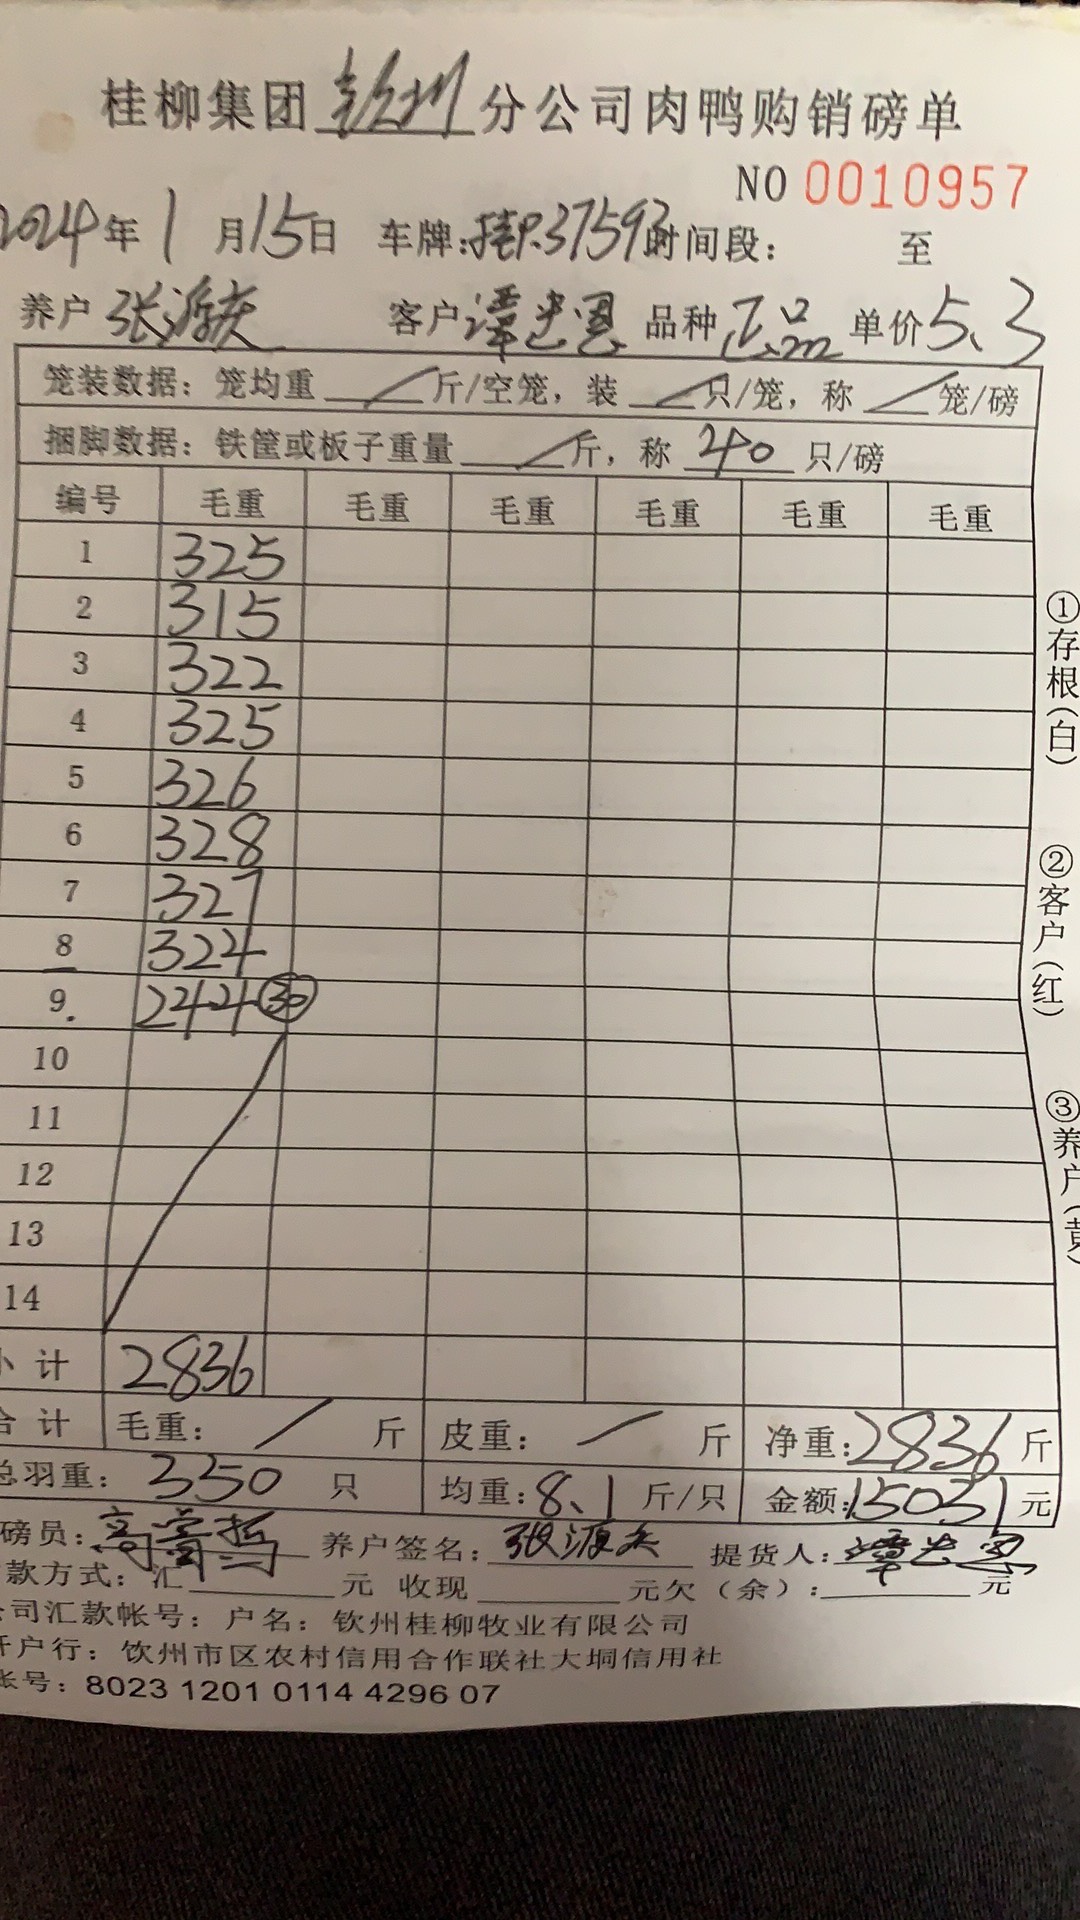 桂柳集团钦州分公司肉鸭购销磅单
NO 0010957
2024年1月15日 车牌:桂P.37593时间段: 至
养户 张源 客户 谭忠恩 品种 正品 单价 5.3
笼装数据: 笼均重 / 斤/空笼, 装 / 只/笼, 称 / 笼/磅
捆脚数据: 铁筐或板子重量 / 斤, 称 240 只/磅
编号 毛重 毛重 毛重 毛重 毛重 毛重
1 325
2 315
3 322
4 325
5 326
6 328
7 327
8 324
9. 244 30
10
11
12
13
14
小计 2836
合计 毛重: / 斤 皮重: / 斤 净重: 2836 斤
总羽重: 350 只 均重: 8.1 斤/只 金额: 15031 元
磅员: 高 养户签名: 张源 提货人: 谭忠恩
款方式: 汇 元 收现 元欠(余): 元
公司汇款帐号: 户名: 钦州桂柳牧业有限公司
开户行: 钦州市区农村信用合作联社大垌信用社
帐号: 8023 1201 0114 4296 07
①存根(白)
②客户(红)
③养户(黄)